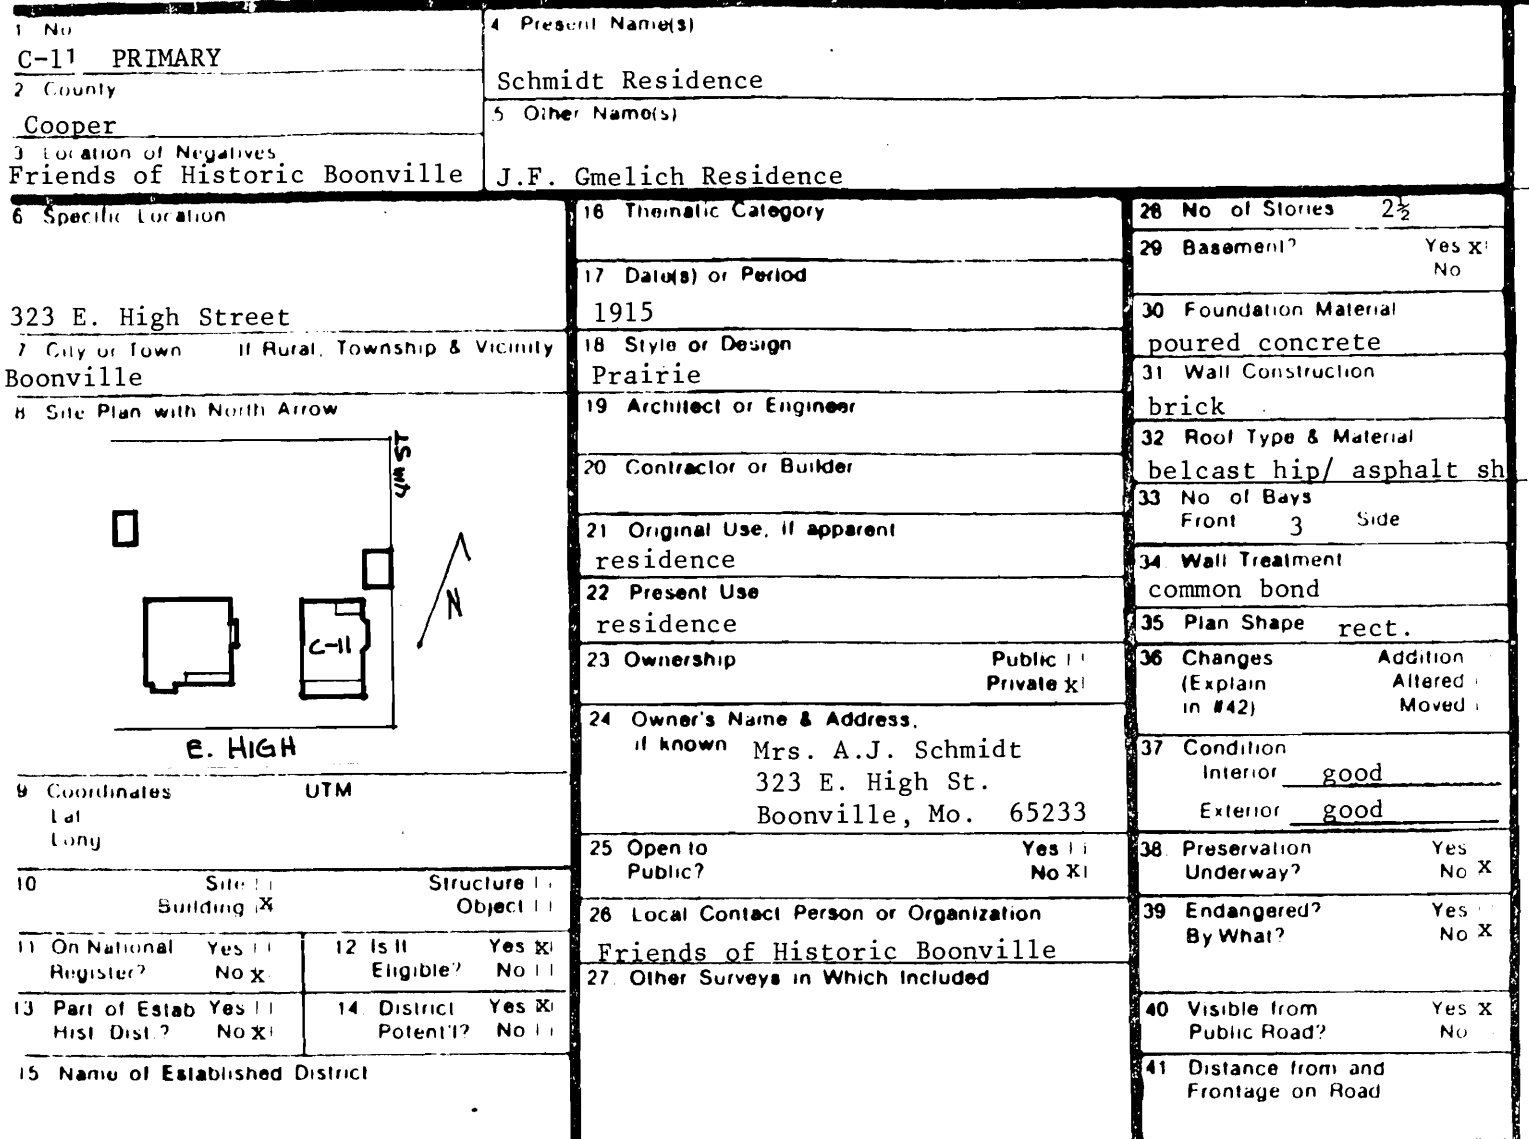 1 No
C-11 PRIMARY
2 County
Cooper
3 Location of Negatives
Friends of Historic Boonville
4 Present Name(s)
Schmidt Residence
5 Other Name(s)
J.F. Gmelich Residence
6 Specific Location
323 E. High Street
7 City or Town If Rural, Township & Vicinity
Boonville
8 Site Plan with North Arrow
4TH ST
N
C-11
E. HIGH
9 Coordinates UTM
Lat
Long
10 Site Structure
Building X Object
11 On National Yes
Register? No X
12 Is It Yes X
Eligible? No
13 Part of Estab Yes
Hist Dist.? No X
14 District Yes X
Potent'l? No
15 Name of Established District
16 Thematic Category
17 Date(s) or Period
1915
18 Style or Design
Prairie
19 Architect or Engineer
20 Contractor or Builder
21 Original Use, if apparent
residence
22 Present Use
residence
23 Ownership Public
Private X
24 Owner's Name & Address,
if known Mrs. A.J. Schmidt
323 E. High St.
Boonville, Mo. 65233
25 Open to Yes
Public? No X
26 Local Contact Person or Organization
Friends of Historic Boonville
27 Other Surveys in Which Included
28 No of Stories 2½
29 Basement? Yes X
No
30 Foundation Material
poured concrete
31 Wall Construction
brick
32 Roof Type & Material
belcast hip/ asphalt sh
33 No of Bays
Front 3 Side
34 Wall Treatment
common bond
35 Plan Shape rect.
36 Changes Addition
(Explain Altered
in #42) Moved
37 Condition
Interior good
Exterior good
38 Preservation Yes
Underway? No X
39 Endangered? Yes
By What? No X
40 Visible from Yes X
Public Road? No
41 Distance from and
Frontage on Road